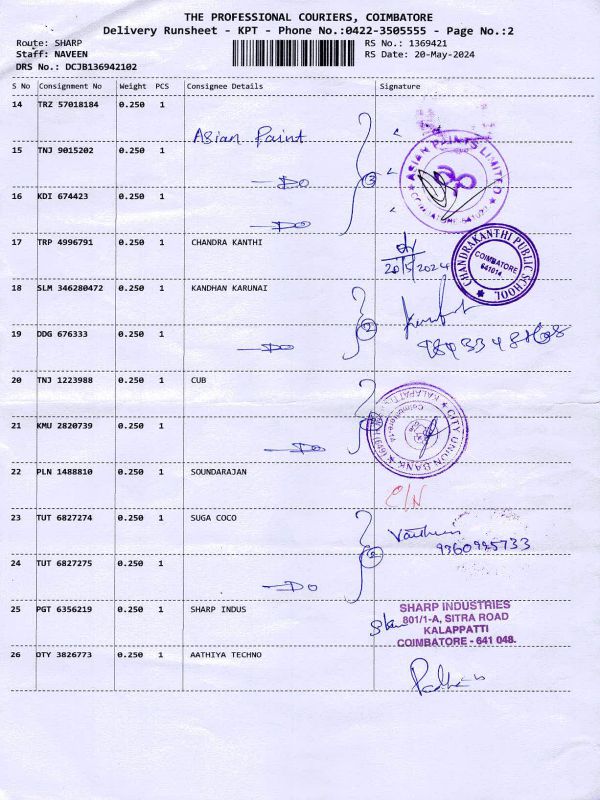 THE PROFESSIONAL COURIERS, COIMBATORE
Delivery Runsheet - KPT - Phone No.:0422-3505555 - Page No.:2
Route: SHARP RS No.: 1369421
Staff: NAVEEN RS Date: 20-May-2024
DRS No.: DCJB136942102
S No Consignment No Weight PCS Consignee Details Signature
14 TRZ 57018184 0.250 1 Asian Paint
15 TNJ 9015202 0.250 1 —Do
ASIAN PAINTS LIMITED
16 KDI 674423 0.250 1 —Do 3
17 TRP 4996791 0.250 1 CHANDRA KANTHI
20/5/2024
CHANDRAKANTHI PUBLIC SCHOOL
COIMBATORE
641014
18 SLM 346280472 0.250 1 KANDHAN KARUNAI
19 DDG 676333 0.250 1 —Do 2
20 TNJ 1223988 0.250 1 CUB
CITY UNION BANK
KALAPATTI
21 KMU 2820739 0.250 1 —Do
22 PLN 1488810 0.250 1 SOUNDARAJAN
C/N
23 TUT 6827274 0.250 1 SUGA COCO
9360995733
24 TUT 6827275 0.250 1 —Do 2
25 PGT 6356219 0.250 1 SHARP INDUS
SHARP INDUSTRIES
801/1-A, SITRA ROAD
KALAPPATTI
COIMBATORE - 641 048.
26 OTY 3826773 0.250 1 AATHIYA TECHNO